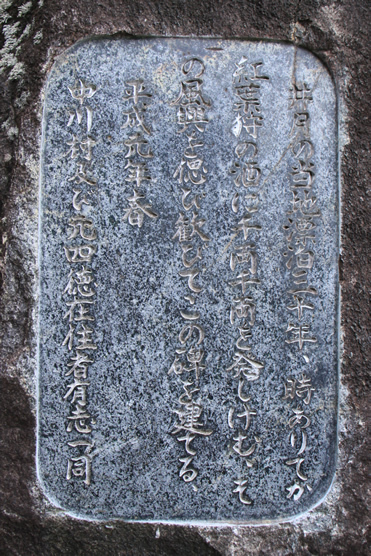 井月の当地漂泊三十年、時ありてか
紅葉狩の酒に千両千両を発しけむ、そ
の風興を偲び歓びてこの碑を建てる、
平成元年春
中川村及び元四徳在住者有志一同